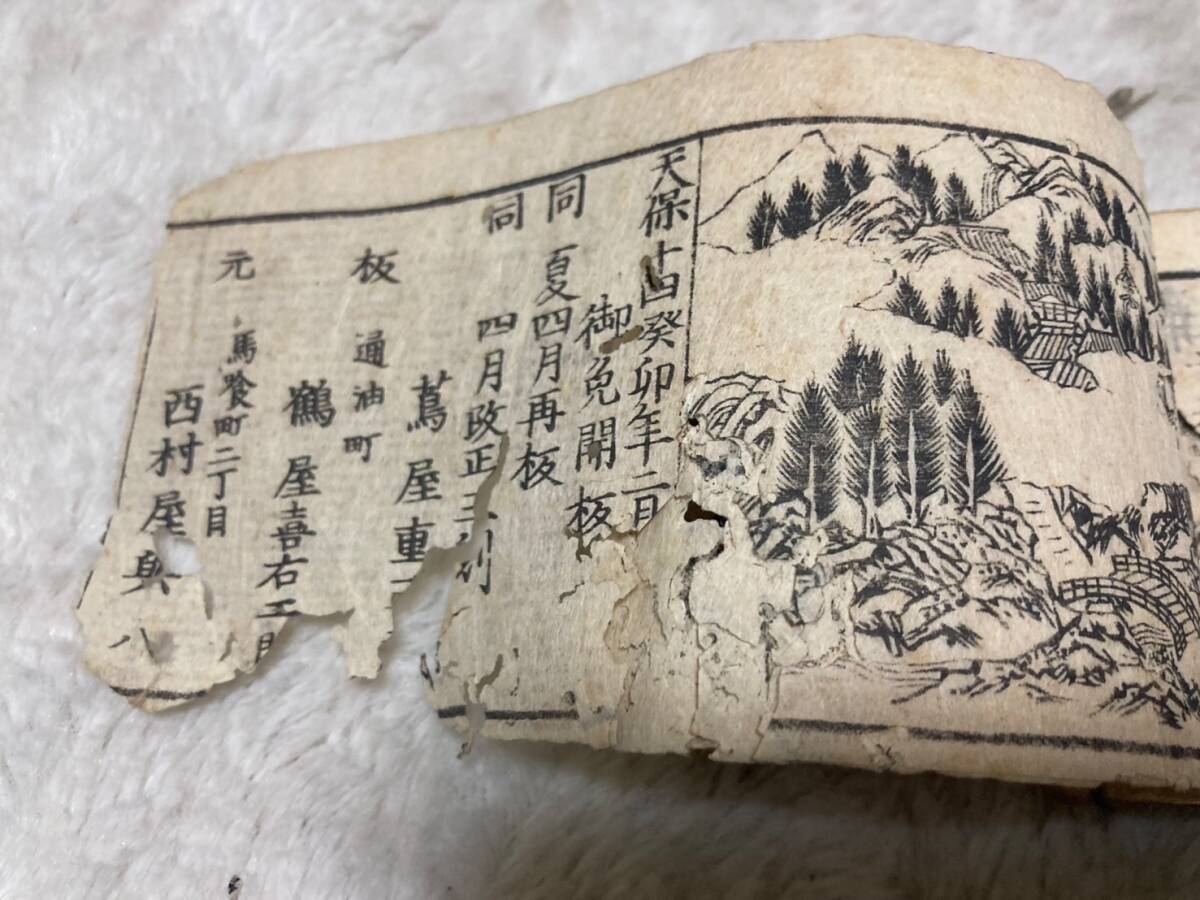 天保十四癸卯年二月
御免開板
同 夏四月再板
同 四月改正三刻
蔦屋重
板 通油町
鶴屋喜右エ
元 馬喰町二丁目
西村屋與八